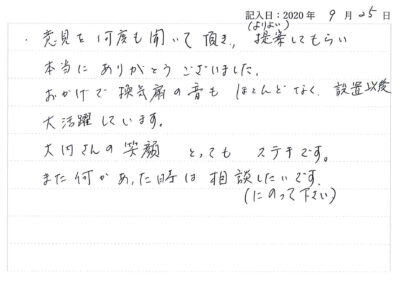 記入日：2020年 9月 25日
(よりよい)
・意見を何度も聞いて頂き、提案してもらい
本当にありがとうございました。
おかげで換気扇の音もほとんどなく、設置以後
大活躍しています。
大内さんの笑顔 とっても ステキです。
また何かあった時は相談したいです。
(にのって下さい)